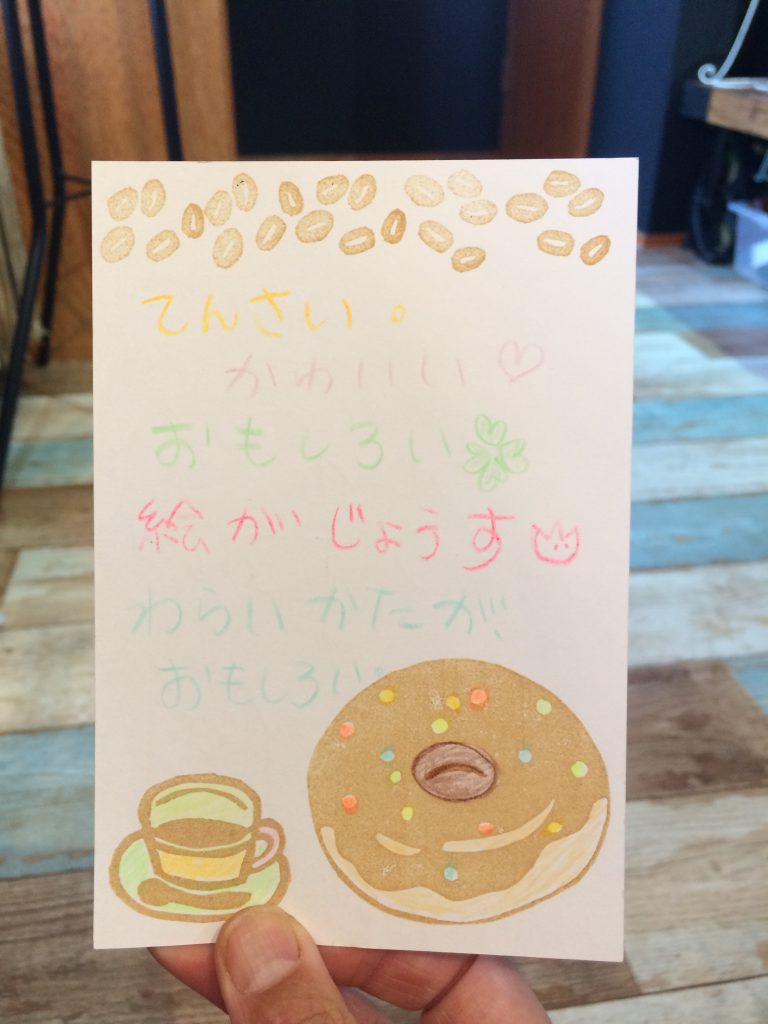 てんさい。
かわいい♡
おもしろい
絵がじょうす
わらいかたが、
おもしろい。